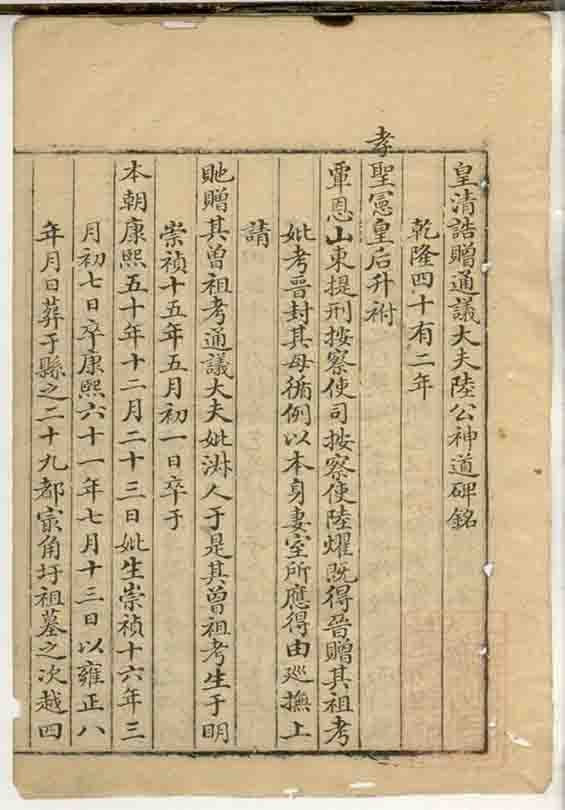 皇清誥贈通議大夫陸公神道碑銘
乾隆四十有二年
孝聖憲皇后升祔
覃恩山東提刑按察使司按察使陸燿既得晉贈其祖考
妣考晉封其母循例以本身妻室所應得由廵撫上
請
貤贈其曾祖考通議大夫妣淑人于是其曾祖考生于明
崇禎十五年五月初一日卒于
本朝康熙五十年十二月二十三日妣生崇禎十六年三
月初七日卒康熙六十一年七月十三日以雍正八
年月日葬于縣之二十九都宗角圩祖墓之次越四